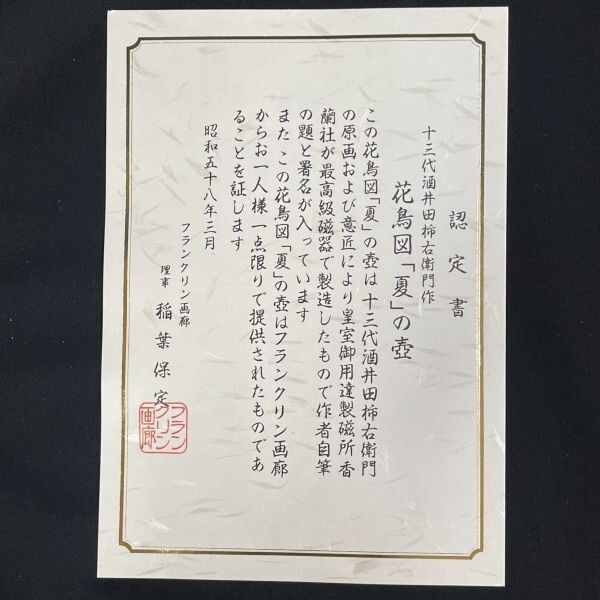 認定書
十三代酒井田柿右衛門作
花鳥図「夏」の壺
この花鳥図「夏」の壺は十三代酒井田柿右衛門
の原画および意匠により皇室御用達製磁所香
蘭社が最高級磁器で製造したもので作者自筆
の題と署名が入っています
また この花鳥図「夏」の壺はフランクリン画廊
からお一人様一点限りで提供されたものであ
ることを証します
昭和五十八年三月
フランクリン画廊
理事 稲葉保定
フランクリン画廊